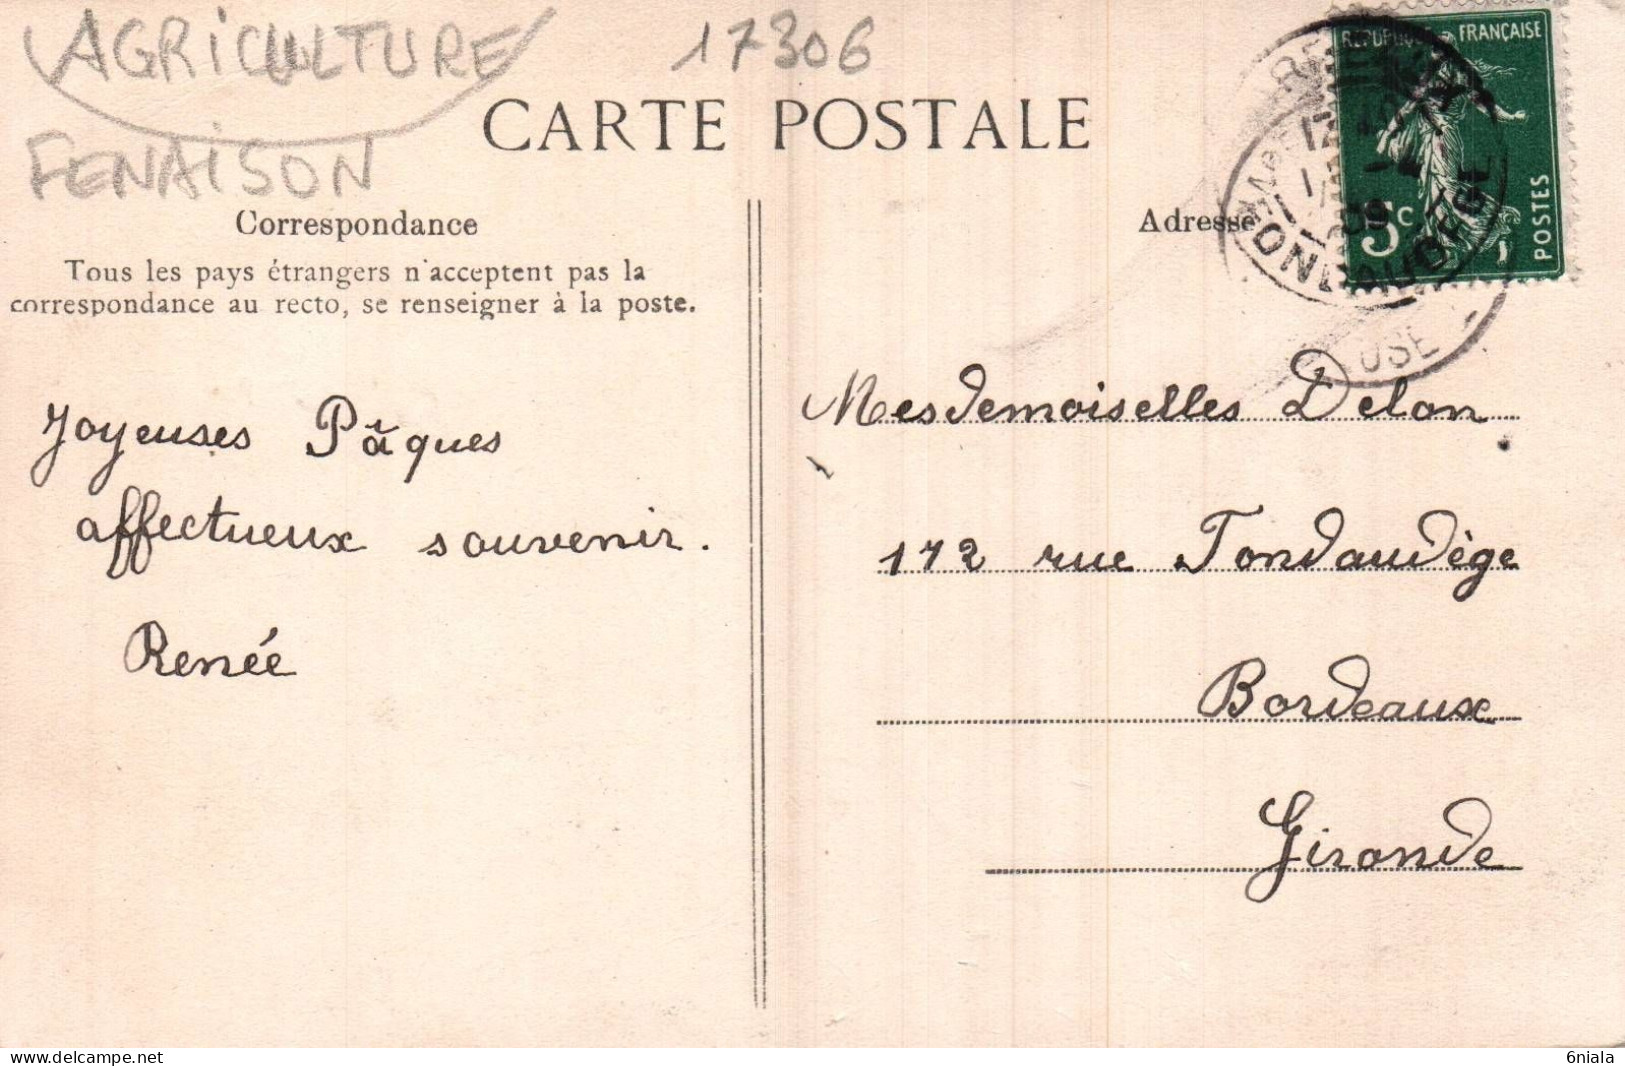 AGRICULTURE
17306
FENAISON
CARTE POSTALE
RÉPUBLIQUE FRANÇAISE
5c
POSTES
Correspondance
Adresse
Tous les pays étrangers n'acceptent pas la
correspondance au recto, se renseigner à la poste.
OUSE
Joyeuses Pâques
affectueux souvenir.
Renée
Mesdemoiselles Delon
172 rue Fondaudège
Bordeaux
Gironde
delcampe.net
6niala